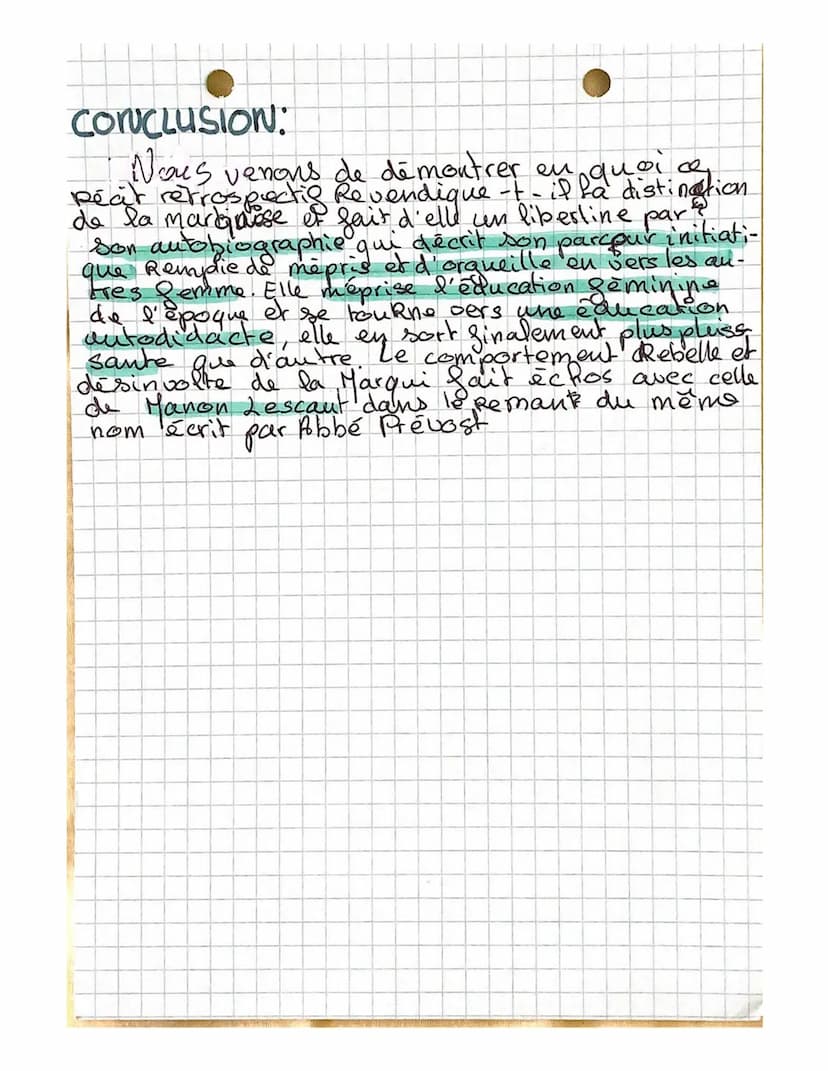 CONCLUSION:
Nous venons de démontrer en quoi ce
récit rétrospectif Revendique-t-il la distinction
de la marquise et fait d'elle un libertine par
son autobiographie qui décrit son parcour initiati-
que Remplie de mépris et d'orgueille en vers les au-
tres femme. Elle méprise l'éducation féminine
de l'époque et se touRne vers une éducation
autodidacte, elle en sort finalement plus puiss-
sante que d'autre. Le comportement Rebelle et
désinvolte de la Marqui fait échos avec celle
de Manon Lescaut dans le Remant du même
nom écrit par Abbé Prévost